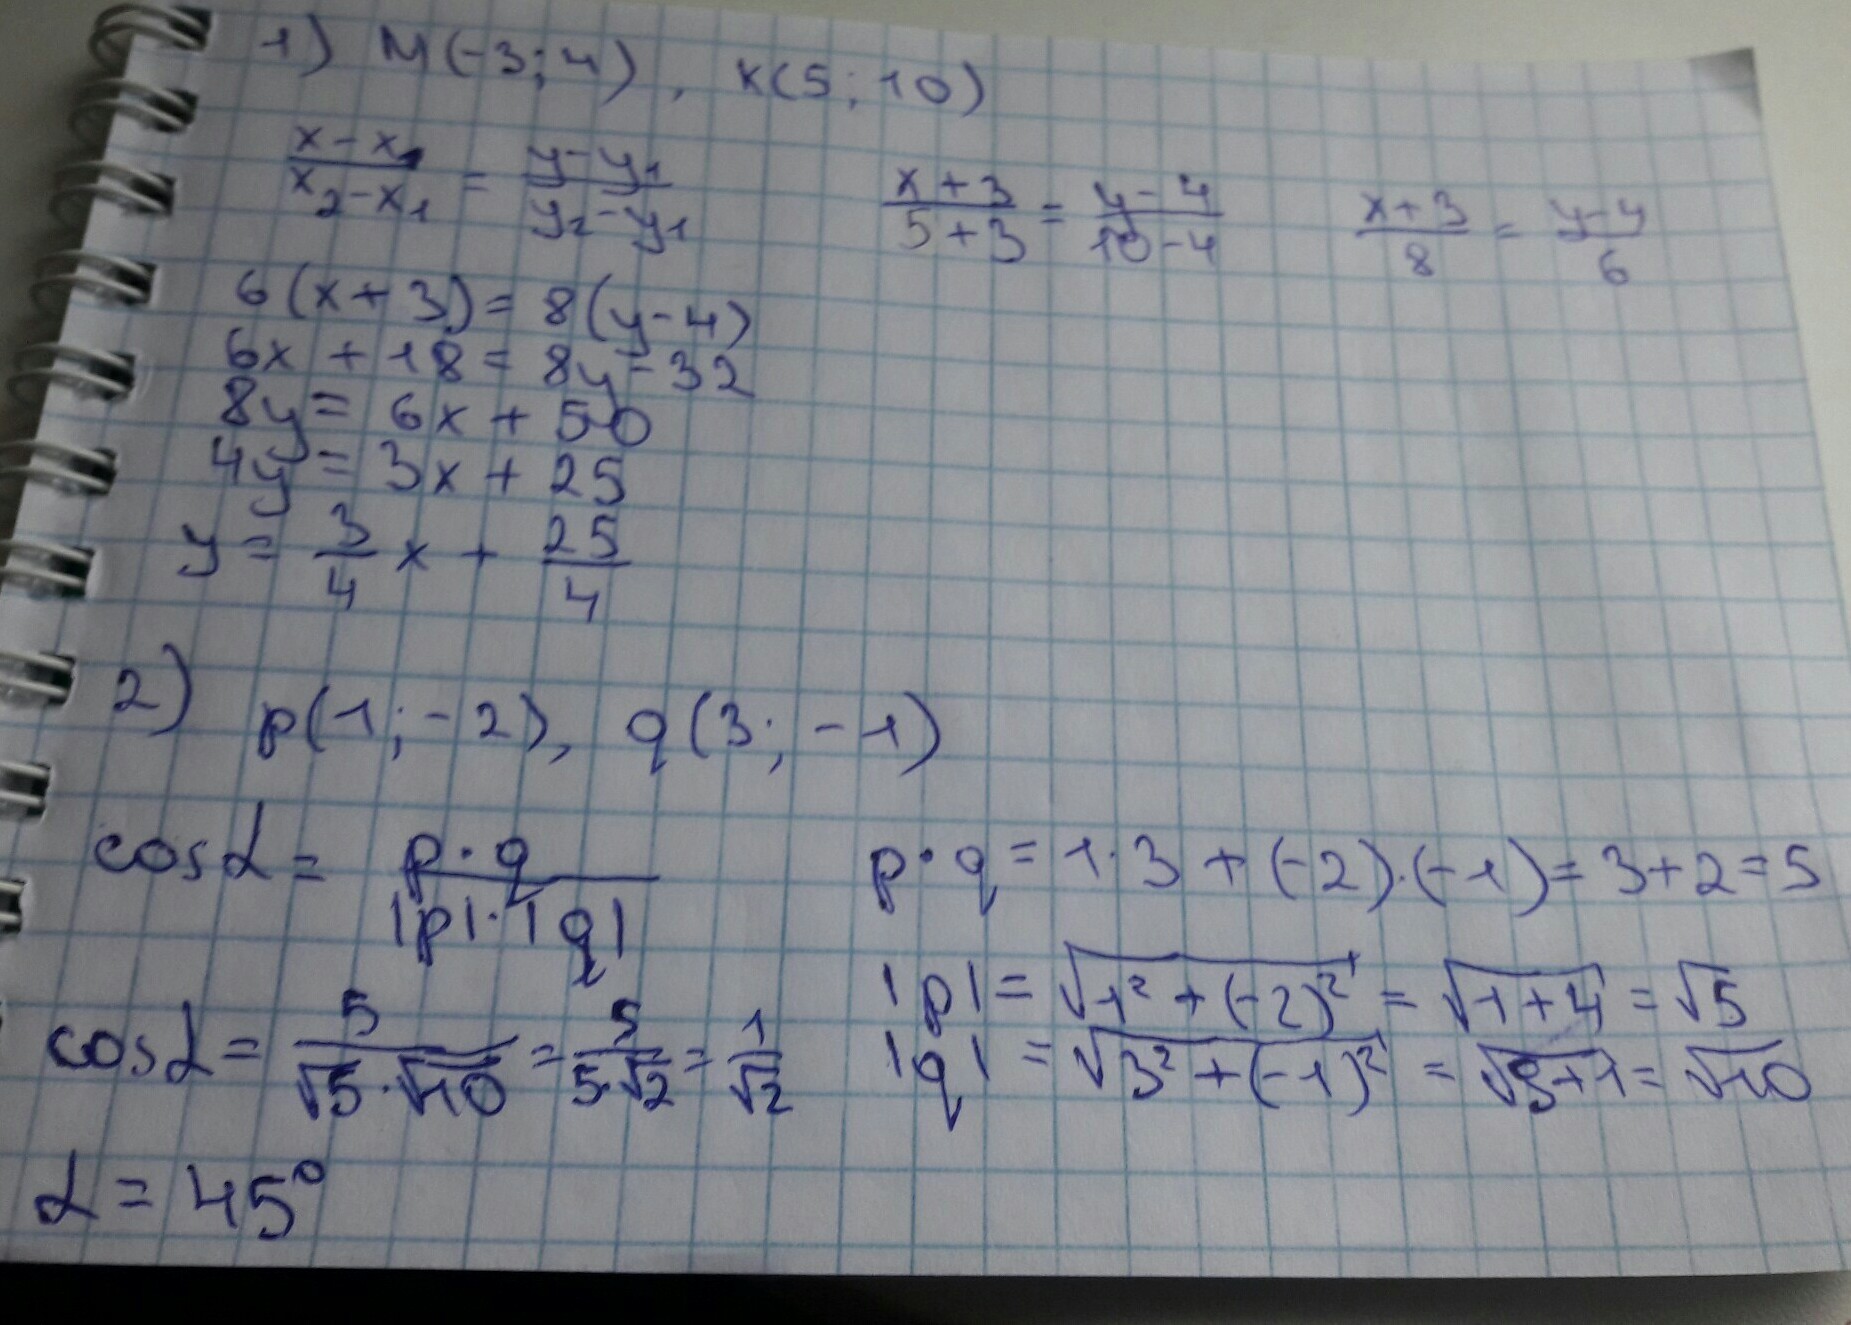 1) M(-3; 4), K(5; 10)
(x-x₁)/(x₂-x₁) = (y-y₁)/(y₂-y₁)   (x+3)/(5+3) = (y-4)/(10-4)   (x+3)/8 = (y-4)/6
6(x+3) = 8(y-4)
6x + 18 = 8y - 32
8y = 6x + 50
4y = 3x + 25
y = 3/4 x + 25/4
2) p(1; -2), q(3; -1)
cosα = (p·q)/(|p|·|q|)   p·q = 1·3 + (-2)·(-1) = 3+2 = 5
|p| = √(1² + (-2)²) = √(1+4) = √5
cosα = 5/(√5·√10) = 5/(5√2) = 1/√2   |q| = √(3² + (-1)²) = √(9+1) = √10
α = 45°